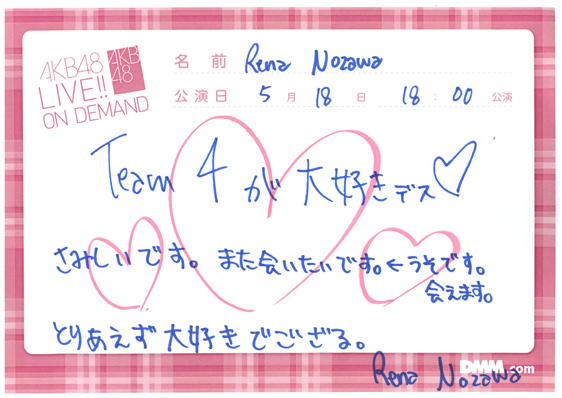 AKB48
LIVE!!
ON DEMAND
AKB
48
名前 Rena Nozawa
公演日 5月18日 18:00 公演
Team 4 が 大好きデス♡
さみしいです。また会いたいです。←うそです。
会えます。
とりあえず大好きでござる。
Rena Nozawa
DMM.com